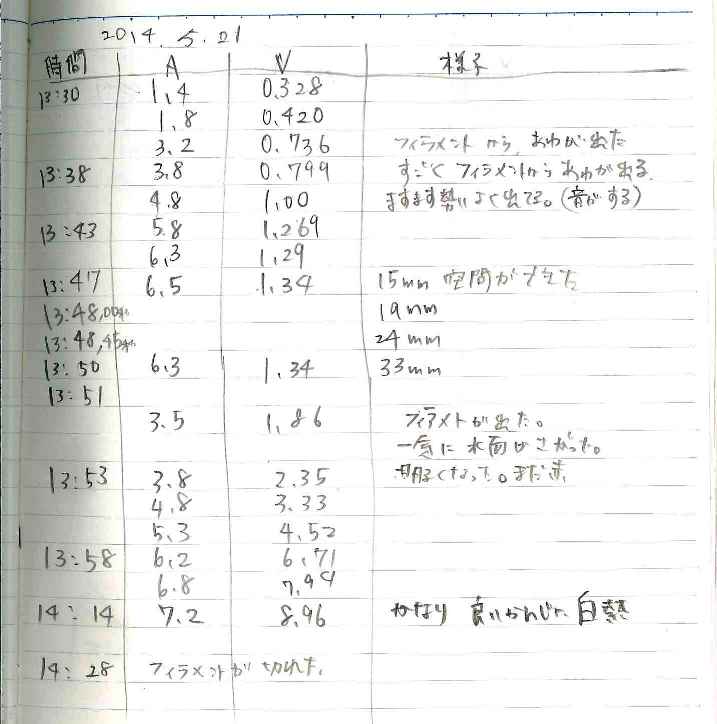 2014. 5. 21
時間 A V 様子
13:30 1,4 0.328
1,8 0.420
3.2 0.736 フィラメントから、あわが出た
13:38 3.8 0.799 すごくフィラメントからあわが出る。
4.8 1,00 ますます勢いよく出てる。(音がする)
13:43 5.8 1,269
6,3 1,29
13:47 6,5 1,34 15mm 空間ができた
13:48,00秒 19mm
13:48,45秒 24mm
13:50 6,3 1,34 33mm
13:51
3.5 1,86 フィラメントが出た。
一気に水面がさがった。
13:53 3.8 2.35 明るくなった。まだ赤
4.8 3.33
5,3 4.52
13:58 6,2 6,71
6.8 7,94
14:14 7.2 8,96 かなり良いかんじに白熱
14:28 フィラメントが切れた。